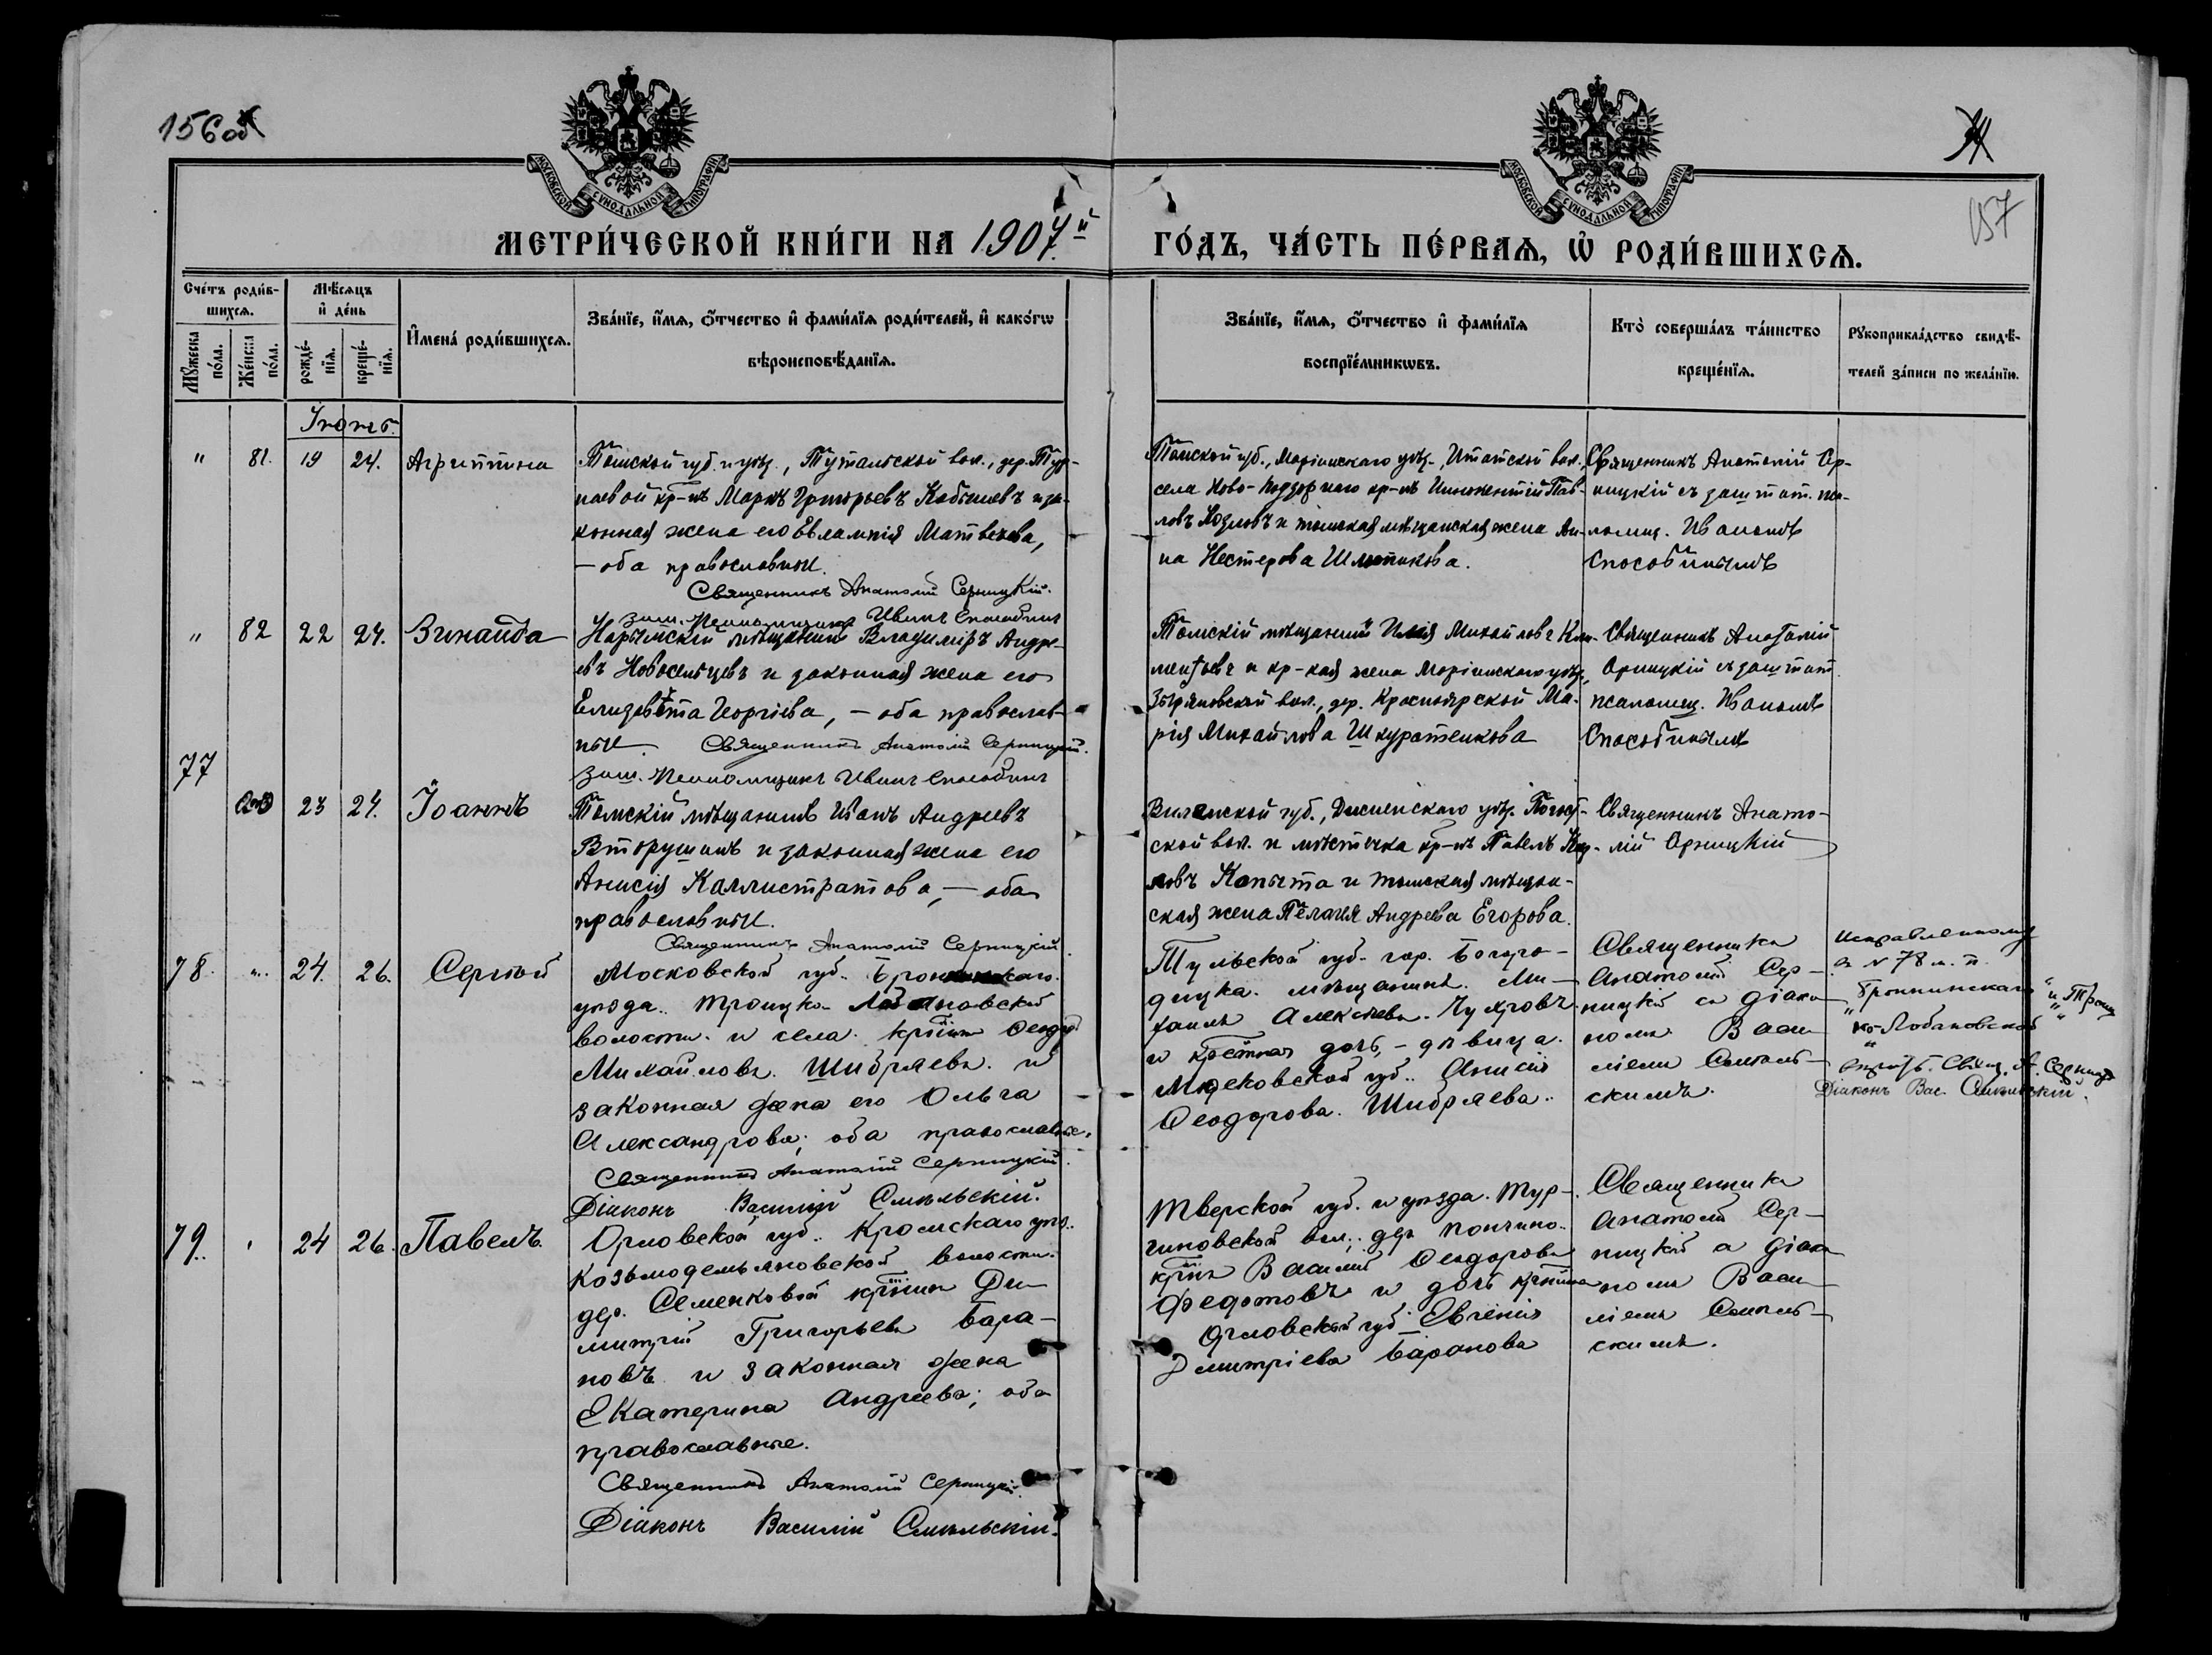 156 об
157
МОСКОВСКОЙ СѴНОДАЛЬНОЙ ТИПОГРАФІИ
МОСКОВСКОЙ СѴНОДАЛЬНОЙ ТИПОГРАФІИ
МЕТРИ́ЧЕСКОЙ КНИ́ГИ НА 1907.й ГО́ДЪ, ЧА́СТЬ ПЕ́РВАѦ, Ѡ҆ РОДИ́ВШИХСѦ.
Сче́тъ роди́в-
шихсѧ.
Мꙋ́жеска по́ла.
Же́нска по́ла.
Мѣ́сѧцъ
и҆ де́нь
рожде́-
нїѧ.
креще́-
нїѧ.
И҆мена̀ роди́вшихсѧ.
Зва́нїе, и҆́мѧ, ѻ҆́тчество и҆ фамѝлїѧ роди́телей, и҆ како́гѡ
вѣроисповѣ́данїѧ.
Зва́нїе, и҆́мѧ, ѻ҆́тчество и҆ фамѝлїѧ
воспрїе́мникѡвъ.
Кто̀ соверша́лъ та́инство
креще́нїѧ.
Рꙋкоприкла́дство свидѣ́-
телей за́писи по жела́нїю.
Іюнь.
" 81. 19 24. Агриппина
Томской губ. и уѣз., Тутальской вол., дер. Тур-
наевой кр-нъ Маркъ Григорьевъ Кабышевъ и за-
конная жена его Евлампія Матвеева,
— оба православныи.
Священникъ Анатолій Серницкій.
заш. Псаломщикъ Иванъ Способинъ
Томской губ., Маріинскаго уѣз., Итатской вол.,
села Ново-Подзорнаго кр-нъ Иннокентій Пав-
ловъ Козловъ и томская мѣщанская жена Ан-
на Нестерова Шлотикова.
Священникъ Анатолій Сер-
ницкій съ заштат. пса-
ломщ. Иваномъ
Способинымъ
" 82 22 24. Зинаида
Нарымскій мѣщанинъ Владиміръ Андре-
евъ Новосельцевъ и законная жена его
Елизавета Георгіева, — оба православ-
ныи. Священникъ Анатолій Серницкій.
заш. Псаломщикъ Иванъ Способинъ
Томскій мѣщанинъ Илія Михайловъ Кли-
ментьевъ и кр-кая жена Маріинскаго уѣз.,
Зыряновской вол., дер. Красноярской Ма-
рія Михайлова Шкуратенкова
Священникъ Анатолій
Серницкій съ заштат.
псаломщ. Иваномъ
Способинымъ
77 23 24. Іоаннъ
Томскій мѣщанинъ Иванъ Андреевъ
Вторушинъ и законная жена его
Анисія Каллистратова, — оба
православныи.
Священникъ Анатолій Серницкій.
Виленской губ., Дисненскаго уѣз. Погост-
ской вол. и мѣстечка кр-нъ Павелъ
Копыта и томская мѣщан-
ская жена Пелагія Андреева Егорова.
Священникъ Анато-
лій Серницкій
78. ". 24. 26. Сергѣй
Московской губ. Брон
уѣзда. Троицко-Лобановской
волости. и села. кр-нинъ Ѳеодоръ
Михайловъ. Шибряевъ. и
законная жена его Ольга
Александрова; оба православные.
Священникъ Анатолій Серницкій.
Діаконъ Василій Смѣльскій.
Тульской губ. гор. Богоро-
дицка. мѣщанинъ. Ми-
хаилъ Алексѣевъ. Чухровъ.
и крестная дочь, - дѣвица.
Московской губ. Анисія
Ѳеодорова. Шибряева.
Священникъ
Анатолій Сер-
ницкій съ діако-
номъ Васи-
ліемъ Смѣль-
скимъ.
Исправленному
въ № 78 м. п.
"Бронницкаго" и "Троиц
ко-Лобановской"
вѣрить. Свящ. А. Серницк
Діаконъ Вас. Смѣльскій.
79. " 24 26. Павелъ.
Орловской губ. Кромскаго уѣз.
Козьмодемьяновской волости.
дер. Семенковой кр-нинъ Ди-
митрій Григорьевъ Бара-
новъ и законная жена
Екатерина Андреева; оба
православные.
Священникъ Анатолій Серницкій.
Діаконъ Василій Смѣльскій.
Тверской губ. и уѣзда. Тур-
гиновской вол., дер.
кр-нинъ Василій Ѳеодоровъ
Федотовъ и дочь кр-нина
Орловской губ. Евгенія
Дмитріева Баранова
Священникъ
Анатолій Сер-
ницкій съ діако-
номъ Васи-
ліемъ Смѣль-
скимъ.